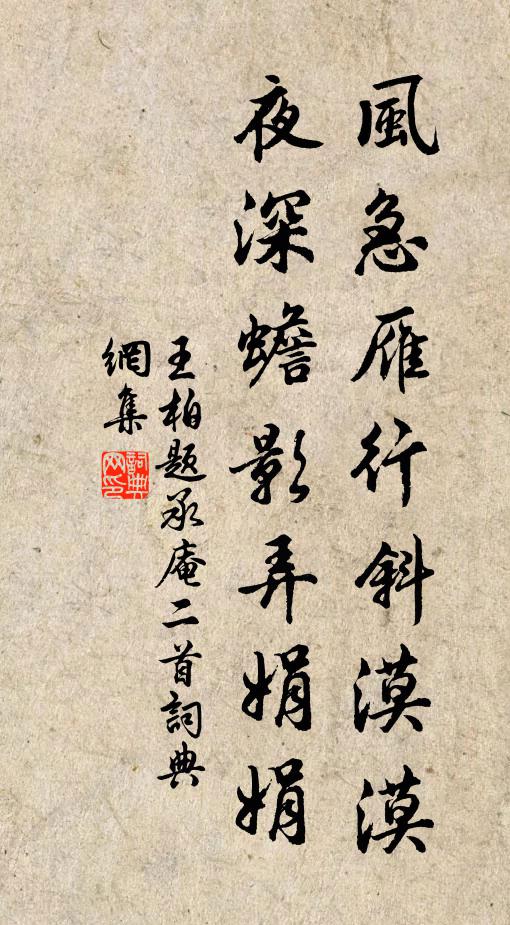 風急雁行斜漠漠
夜深蟾影弄娟娟
王柏題承庵二首詞典
網集
詞典網印